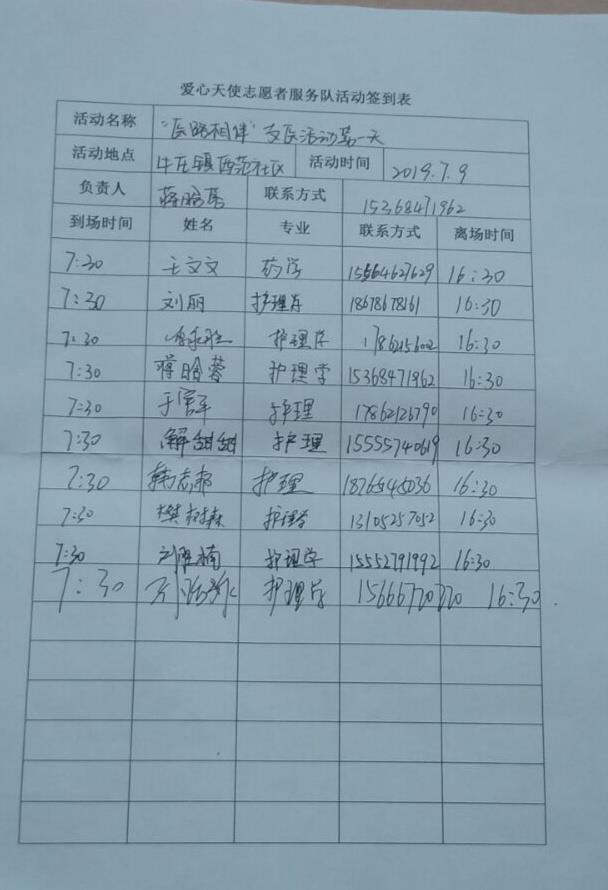 爱心天使志愿者服务队活动签到表
活动名称 “医路相伴”支医活动第一天
活动地点 牛庄镇西范社区 活动时间 2019.7.9
负责人 蒋晗蓉 联系方式 15368471962
到场时间 姓名 专业 联系方式 离场时间
7:30 王文文 药学 15564627629 16:30
7:30 刘丽 护理学 18678678161 16:30
7:30 护理学 1786215602 16:30
7:30 蒋晗蓉 护理学 15368471962 16:30
7:30 于官平 护理 17862126790 16:30
7:30 解甜甜 护理 15555740619 16:30
7:30 韩志邦 护理 18765445036 16:30
7:30 樊树森 护理学 13105257052 16:30
7:30 刘胜楠 护理学 15552791992 16:30
7:30 护理学 15666770770 16:30